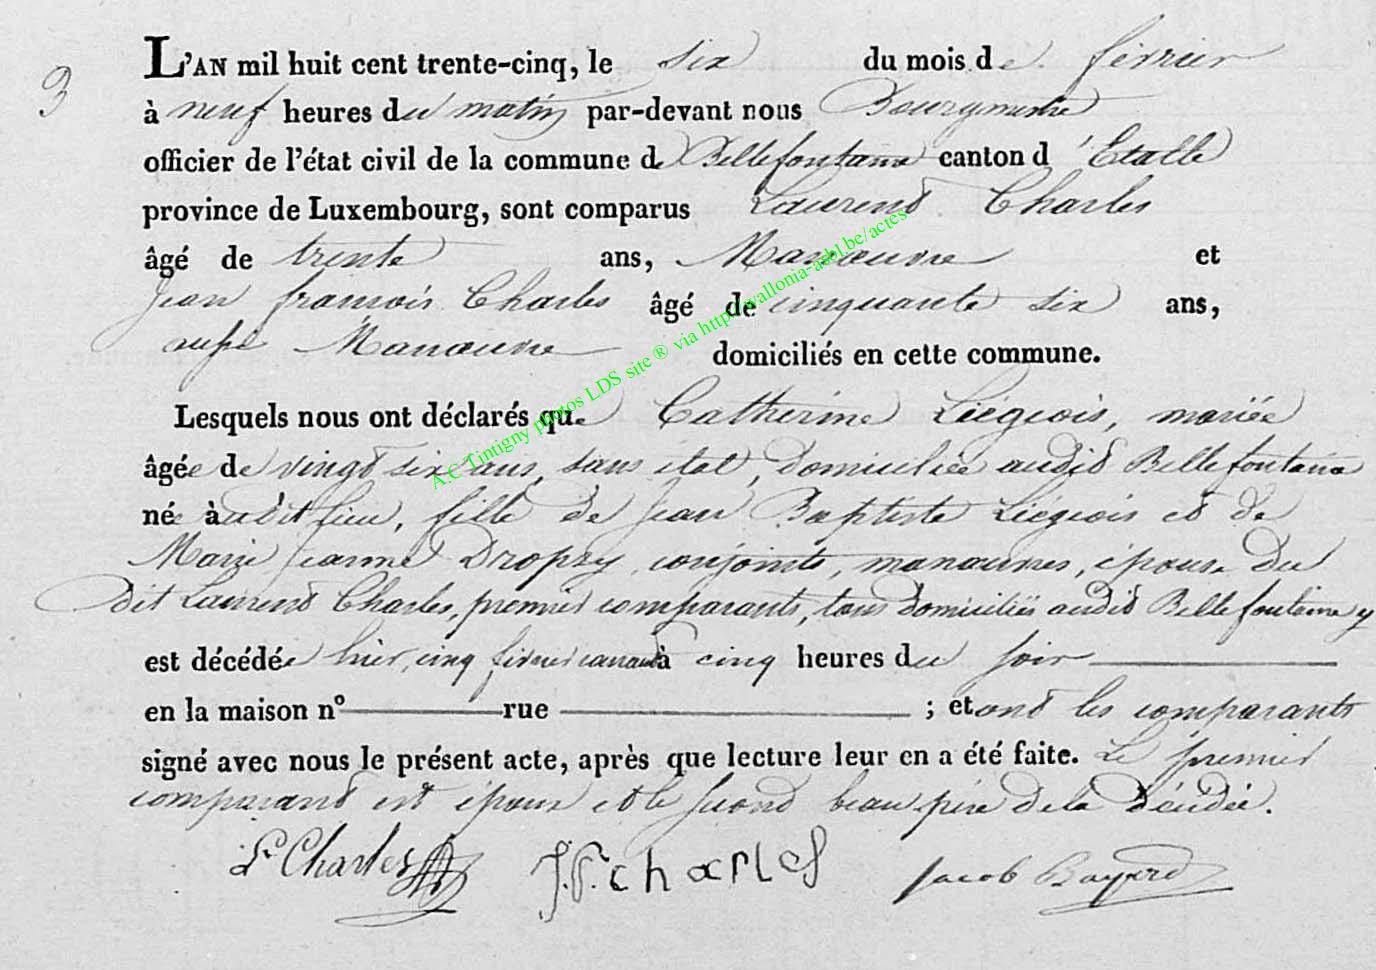 3
L'AN mil huit cent trente-cinq, le six du mois de février
à neuf heures du matin par-devant nous Bourgmestre
officier de l'état civil de la commune de Bellefontaine canton d'Etalle
province de Luxembourg, sont comparus Laurend Charles
âgé de trente ans, Manoeuvre et
Jean françois Charles âgé de cinquante six ans,
aussi Manoeuvre domiciliés en cette commune.
Lesquels nous ont déclarés que Catherine Liégeois, mariée
âgée de vingt six ans, sans état, domiciliée audit Bellefontaine
née audit lieu, fille de Jean Baptiste Liégeois et de
Marie Jeanne Dropsy, conjoints, manoeuvres, épouse du
dit Laurend Charles, premier comparants, tous domiciliés audit Bellefontaine y
est décédée hier, cinq février courant à cinq heures du soir
en la maison n° rue ; et ont les comparants
signé avec nous le présent acte, après que lecture leur en a été faite. Le premier
comparant est époux et le second beau père de la décédée.
Lt Charles J.F. charles Jacob Bayard
A.C Tintigny photos LDS site ® via http://wallonia-asbl.be/actes